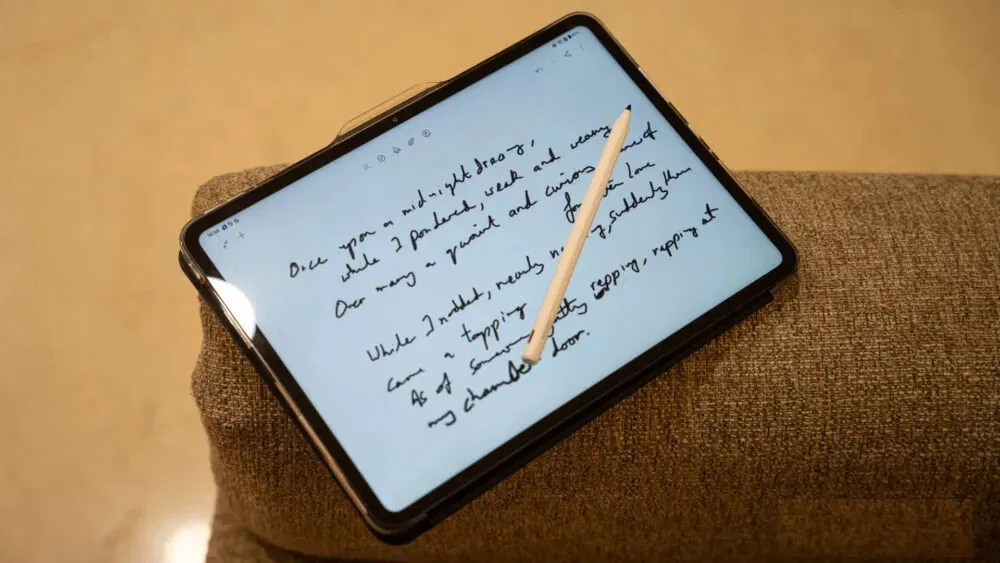 Once upon a midnight dreary,
while I pondered, weak and weary
Over many a quaint and curious of
lore
While I nodded, nearly suddenly then
came a tapping
As of someone rapping, rapping at
my chamber door.